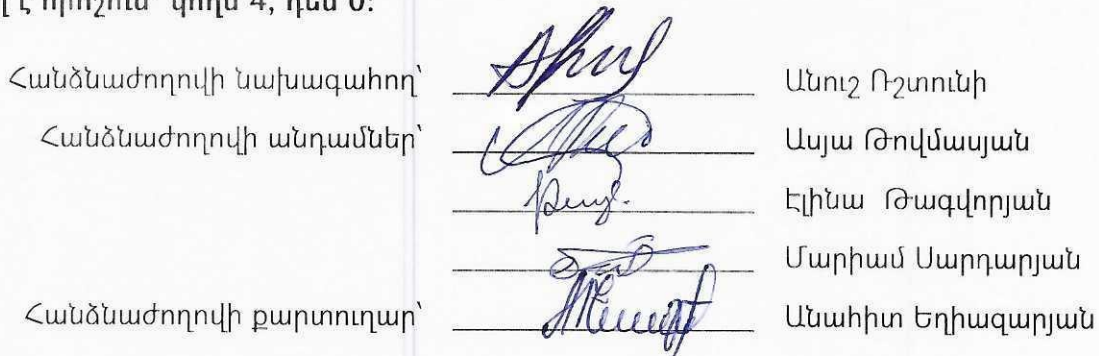 է որոշում՝ կողմ 4, դեմ 0:
Հանձնաժողովի նախագահող՝ Անուշ Ռշտունի
Հանձնաժողովի անդամներ՝ Ասյա Թովմասյան
Էլինա Թագվորյան
Մարիամ Սարդարյան
Հանձնաժողովի քարտուղար՝ Անահիտ Եղիազարյան